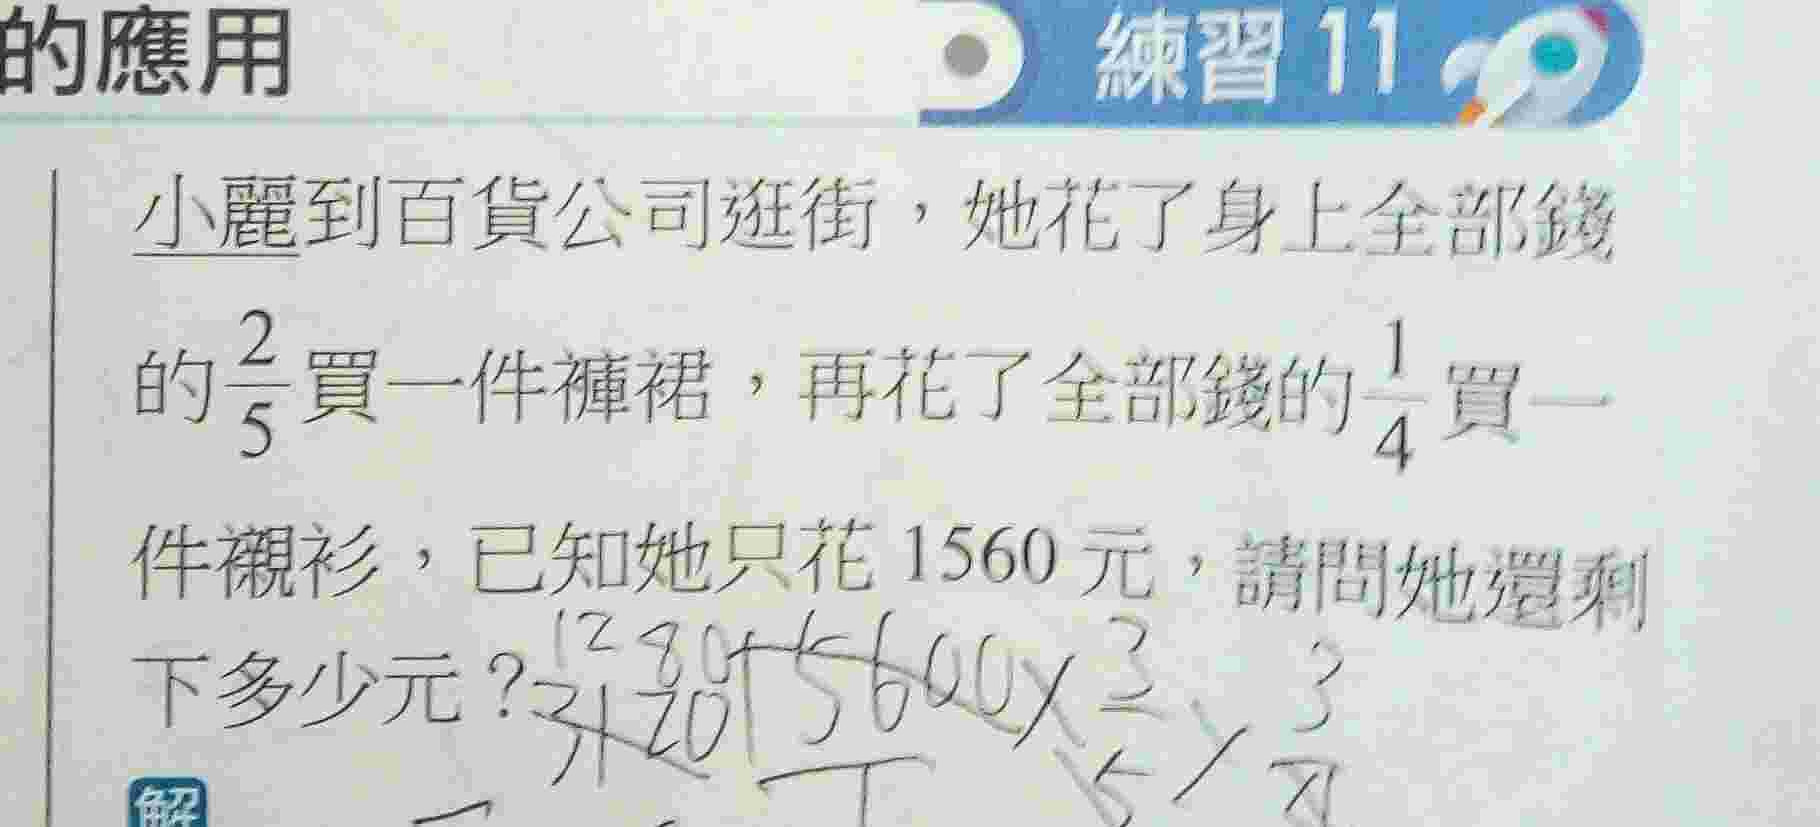 的應用
練習 11
小麗到百貨公司逛街,她花了身上全部錢
的 2/5 買一件褲裙,再花了全部錢的 1/4 買一
件襯衫,已知她只花 1560 元,請問她還剩
下多少元?
12 80
3120 15600 × 3/5 × 3/4
解